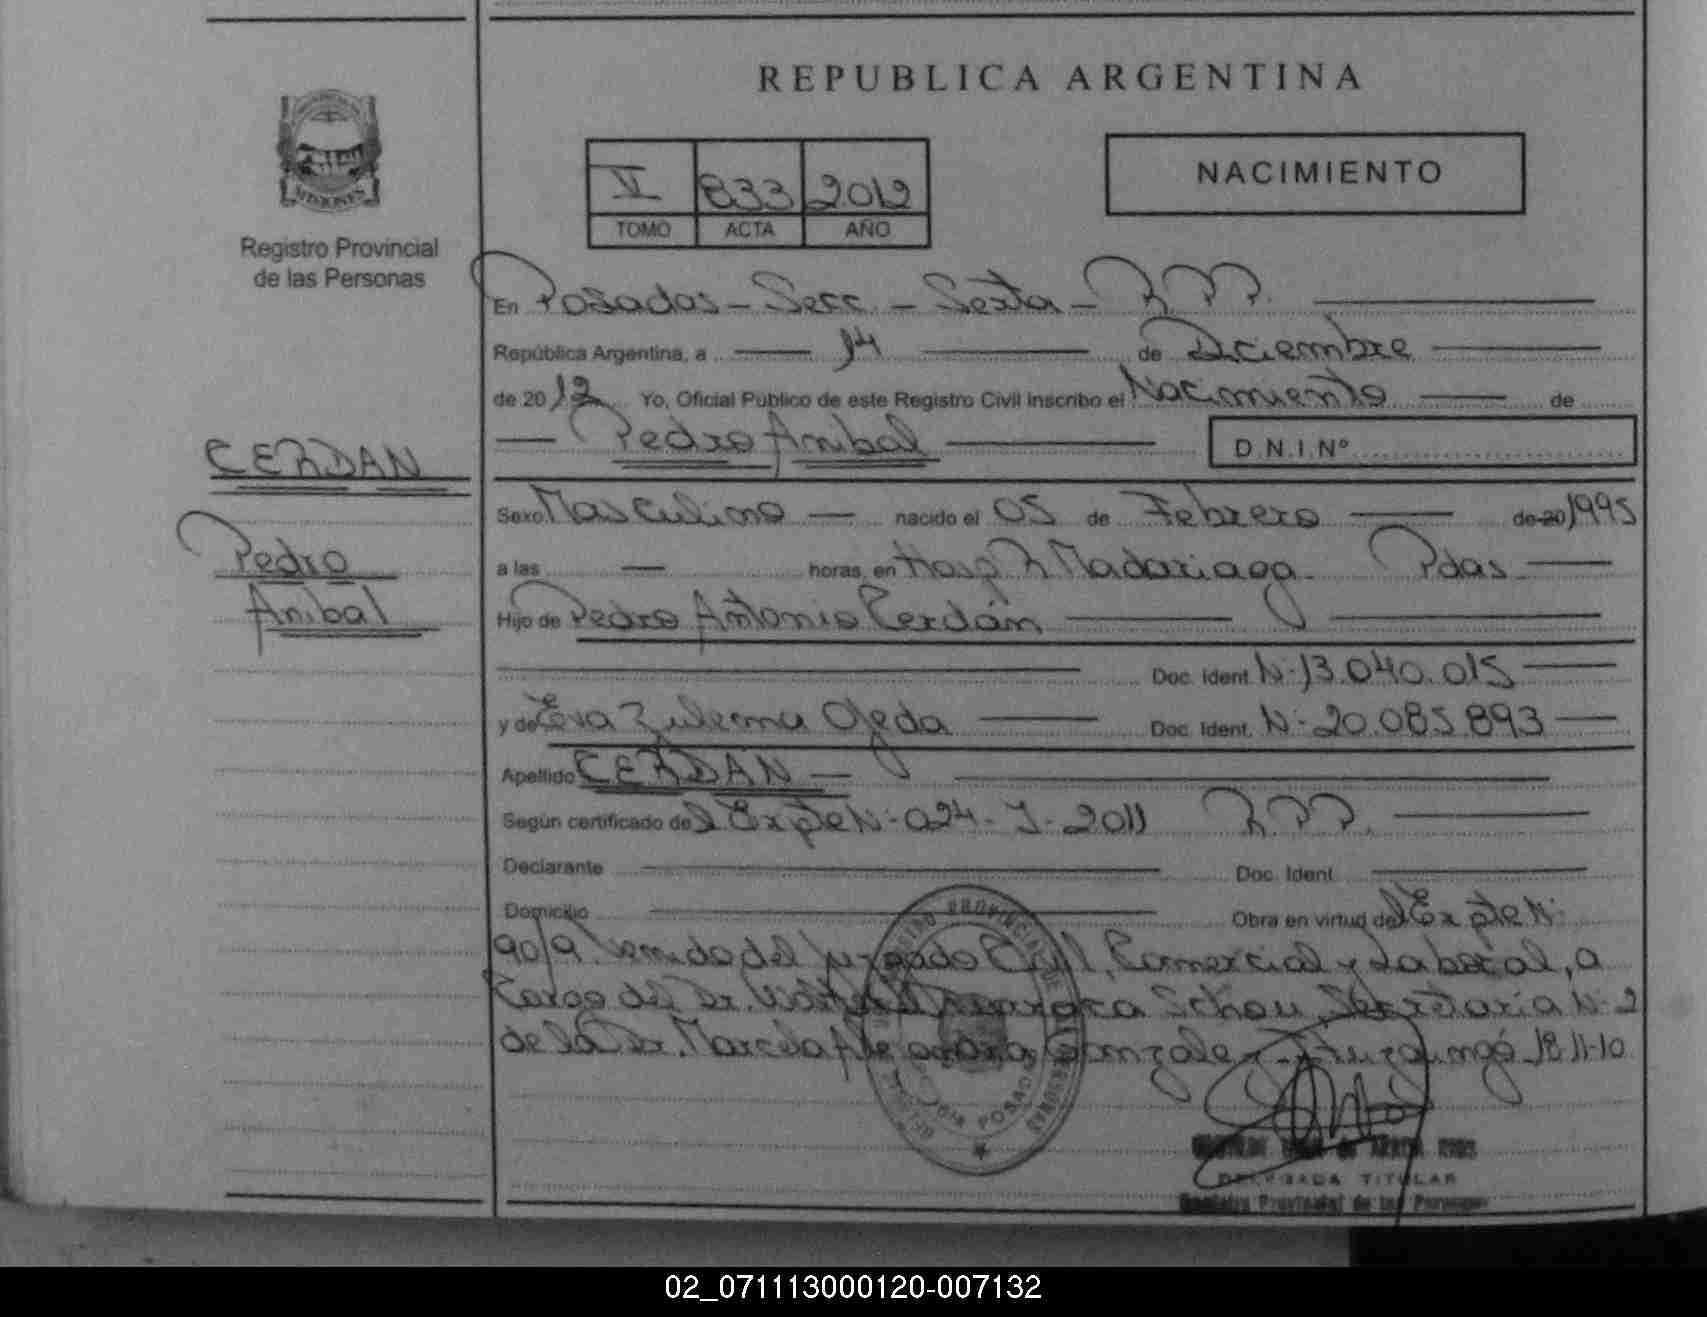 REPUBLICA ARGENTINA
MISIONES
Registro Provincial
de las Personas
VI 833 2012
TOMO ACTA AÑO
NACIMIENTO
En Posadas - Secc. - Sexta - R.P.P.
República Argentina, a 14 de Diciembre
de 2012 Yo, Oficial Público de este Registro Civil Inscribo el Nacimiento de
Pedro Anibal D.N.I.Nº
CERDAN
Pedro
Anibal
Sexo Masculino nacido el 05 de Febrero de 20 1995
a las horas, en Hosp R Madariaga Pdas
Hijo de Pedro Antonio Cerdán
Doc. Ident. N- 13.040.015
y de Eva Zulema Ojeda Doc. Ident. N- 20.085.893
Apellido CERDAN
Según certificado del Expte N- 024- J- 2011 R.P.P.
Declarante Doc. Ident.
Domicilio Obra en virtud del Expte N-
90/9. Venido del Juzgado Civil, Comercial y Laboral, a
Cargo del Dr. Schou, Secretaria N- 2
de la Dr. Marcela Gonzalez 18-11-10
POSADAS
DELEGADA TITULAR
Registro Provincial de las Personas
02_071113000120-007132